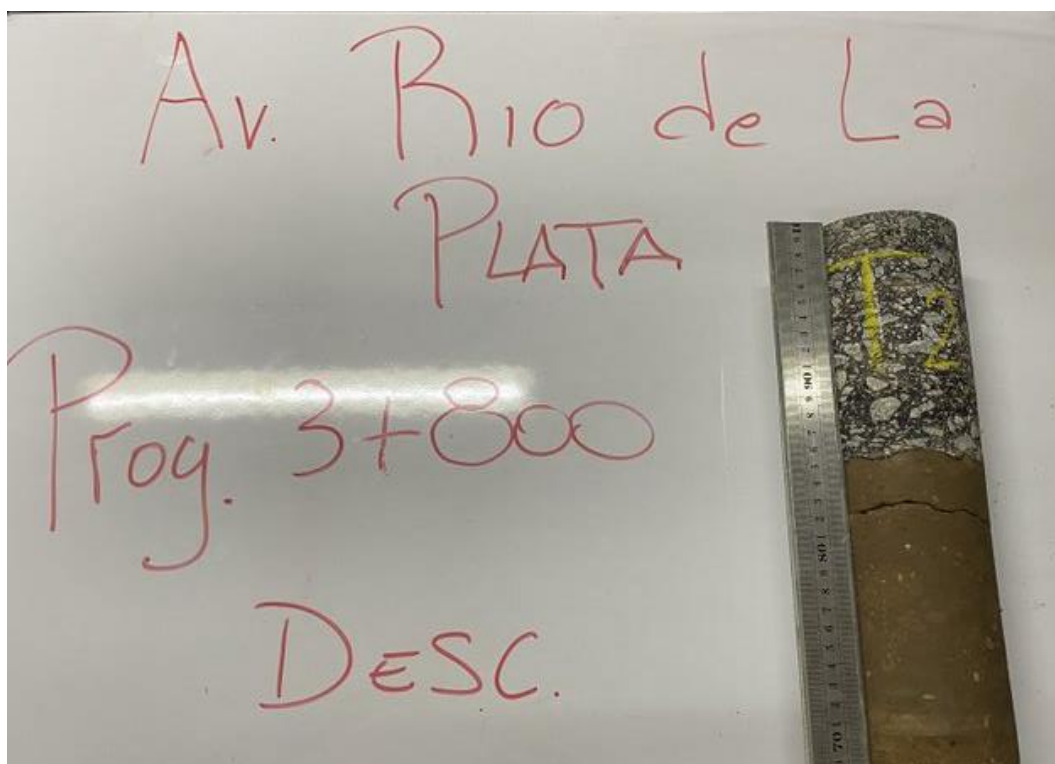 Av. Rio de La
PLATA
Prog. 3+800
DESC.
T2